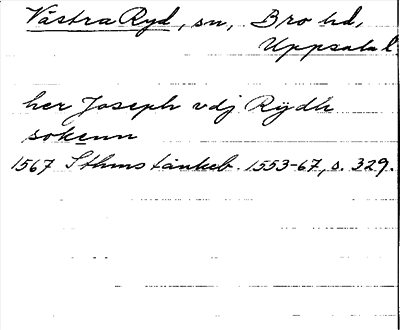 Västra Ryd, sn, Bro hd,
Uppsala l
her Joseph vdj Rÿdh
sokenn
1567 Sthms tänkeb. 1553-67, s. 329.